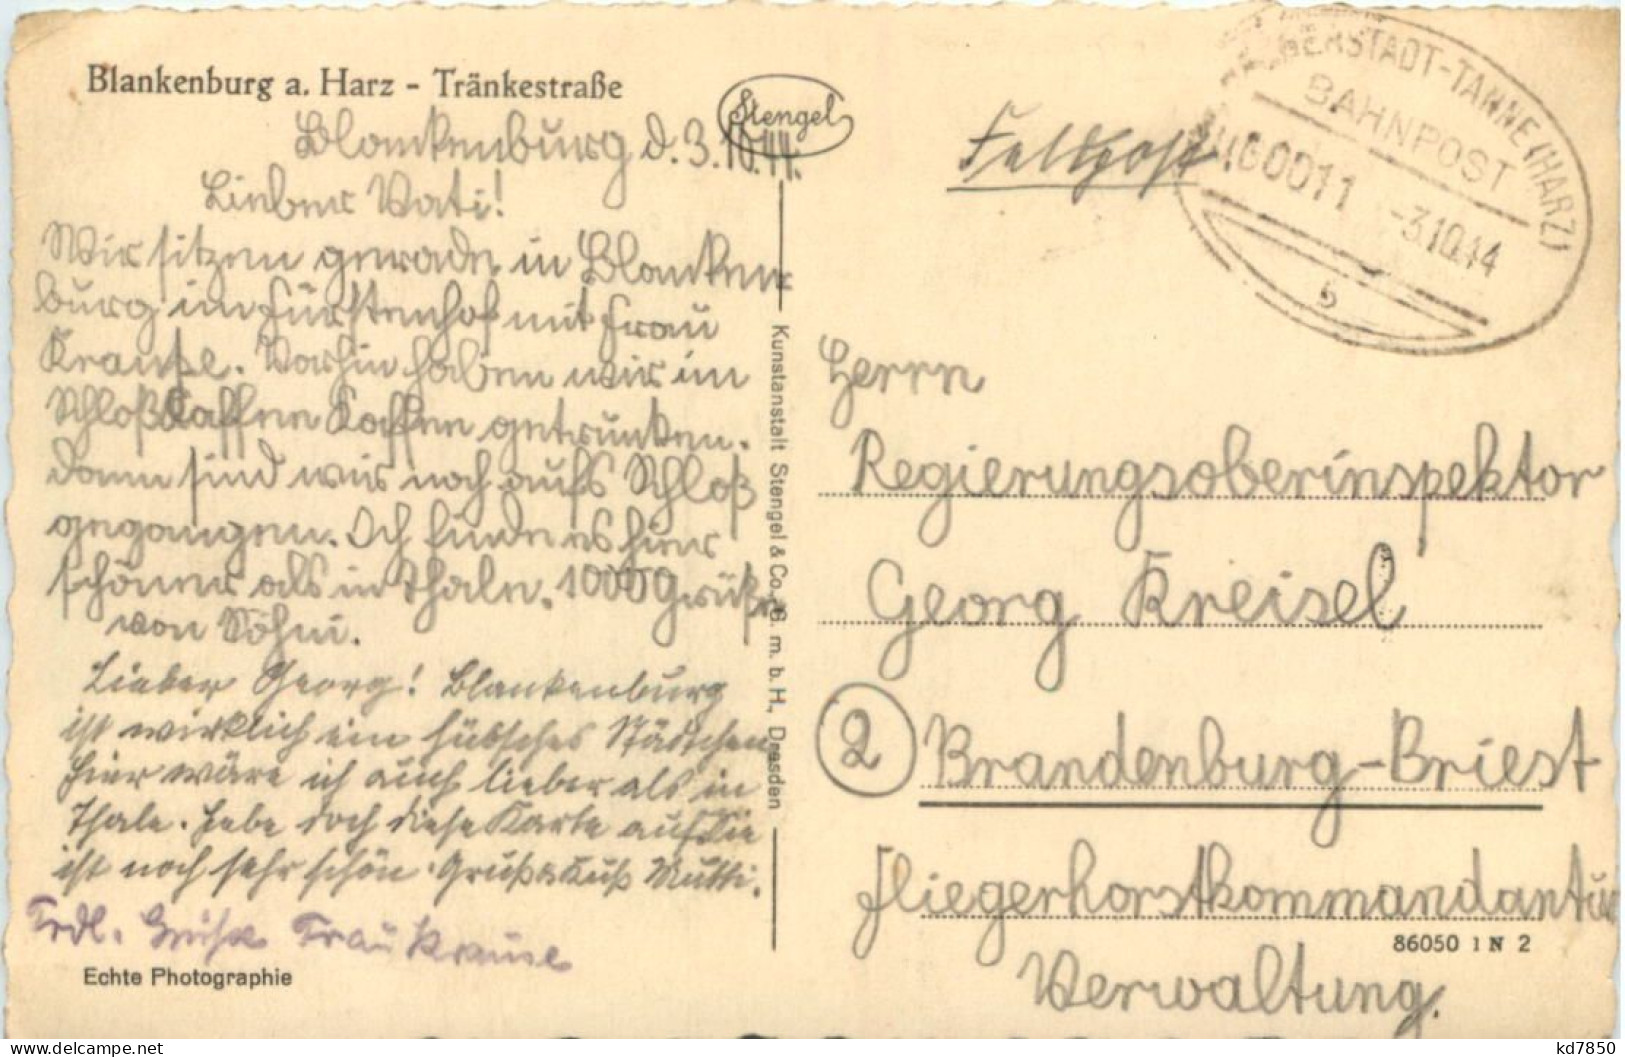 Blankenburg a. Harz - Tränkestraße
Stengel
Blankenburg d. 3.10.44.
Lieber Vati!
Wir sitzen gerade in Blanken
burg im Fürstenhof mit Frau
Krause. Vorhin haben wir im
Schloßkaffee Kaffee getrunken.
Dann sind wir noch aufs Schloß
gegangen. Ich finde es hier
schöner als in Thale. 1000 Grüße
von Söhni.
Lieber Georg! Blankenburg
ist wirklich ein hübsches Städtchen
hier wäre ich auch lieber als in
Thale. Hebe doch diese Karte auf. Sie
ist noch sehr schön. Gruß & Kuß Mutti.
Frdl. Grüße Frau Krause
Echte Photographie
Kunstanstalt Stengel & Co., G. m. b. H., Dresden
Feldpost
BERSTADT-TANNE (HARZ)
BAHNPOST
-3.10.44
Herrn
Regierungsoberinspektor
Georg Kreisel
2 Brandenburg-Briest
Fliegerhorstkommandantur
Verwaltung.
86050 1 N 2
kd7850